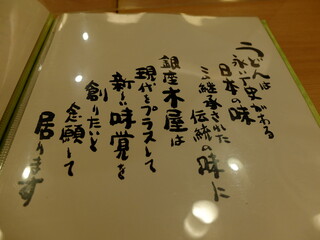 うどんは
永い歴史がある
日本の味
この継承された
伝統の味に
銀座木屋は
現代をプラスして
新しい味覚を
創りたいと
念願して
居ります